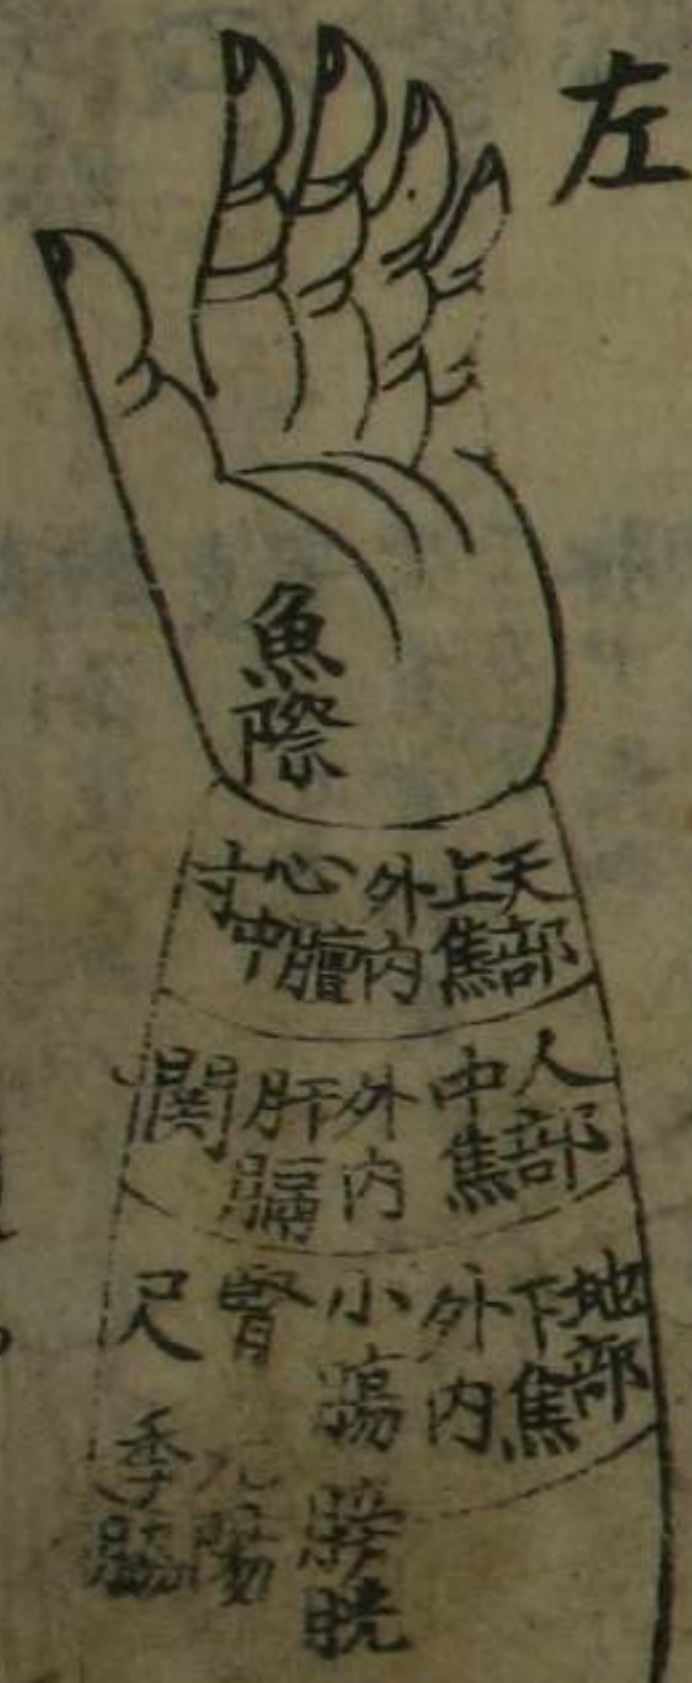 左
魚際
天部
上焦
外内
心膻
寸中
人部
中焦
外内
肝膈
関
地部
下焦
外内
小腸膀胱
腎
尺
季脇